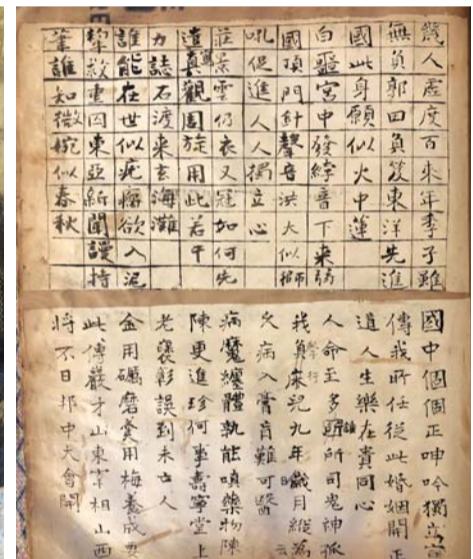 幾人虛度百來年季子雖
無負郭田負笈東洋先進
國此身願似火中蓮
白堊宮中發綍音下來弱
國頂門針聲音洪大似
吼促進人人獨立心
莊景雲仍衣又冠如何先
遣眞觀周旋用此若干
力誌石渡來玄海灘
誰能在世似疣瘤欲入泥
犂救重囚東亞新聞謾持
筆誰知微婉似春秋
國中個個正呻吟獨立宣
傳我所任從此婚姻開
道人生樂在貴同心
人命至多所司鬼神孤
我負床兒九年月縱爲
欠病入膏肓難可醫
病魔纏體孰能嗔藥物陳
陳更進珍何事壽寧堂上
老褒彰誤到未亡人
金用礪磨羹用梅養成要
此傳巖才山東宰相山西
將不日邦中大會開